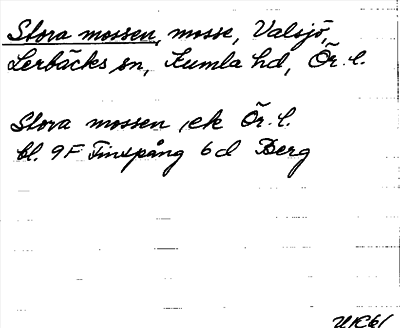 Stora mossen, mosse, Valsjö,
Lerbäcks sn, Kumla hd, Ör. l.
Stora mossen, ek Ör. l.
bl. 9F Finspång 6d Berg